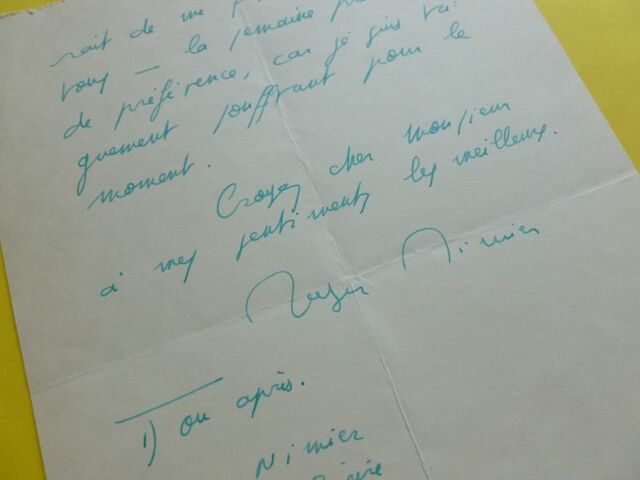 rait de me
vous — la semaine
de préférence, car je suis va-
guement souffrant pour le
moment.
Croyez cher monsieur
à mes sentiments les meilleurs.
Roger Nimier
1) ou après.
Nimier